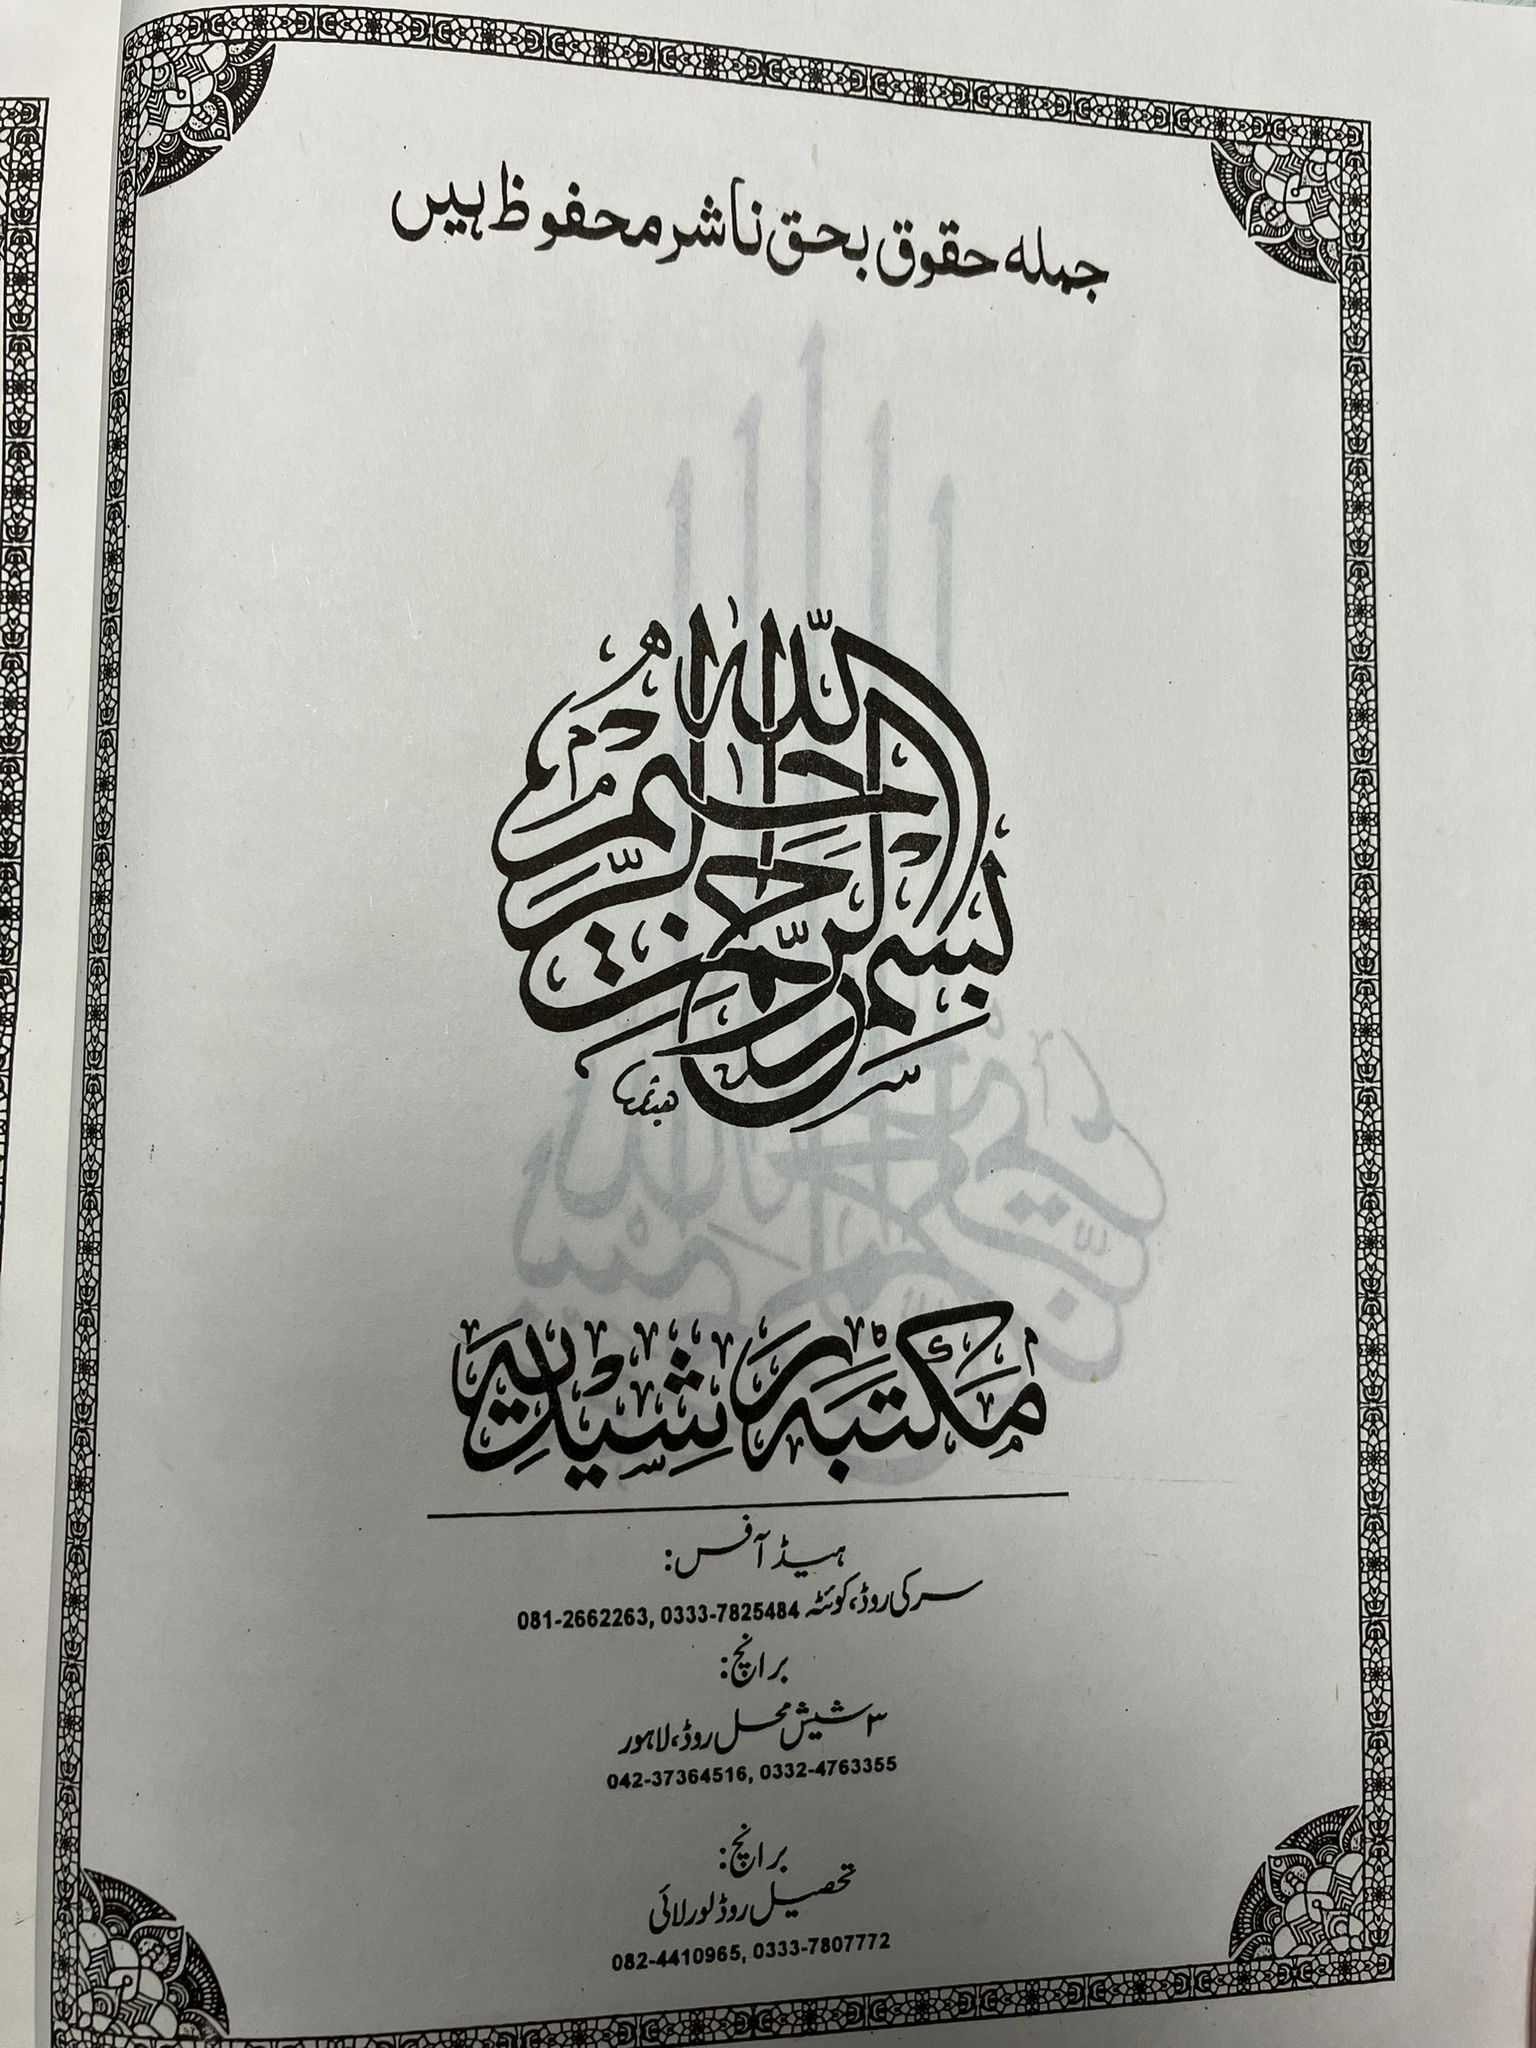 جملہ حقوق بحق ناشر محفوظ ہیں
بسم اللہ الرحمن الرحیم
مکتبہ رشیدیہ
ہیڈ آفس:
سرکی روڈ، کوئٹہ 081-2662263, 0333-7825484
برانچ:
۳ شیش محل روڈ، لاہور
042-37364516, 0332-4763355
برانچ:
تحصیل روڈ لورلائی
082-4410965, 0333-7807772